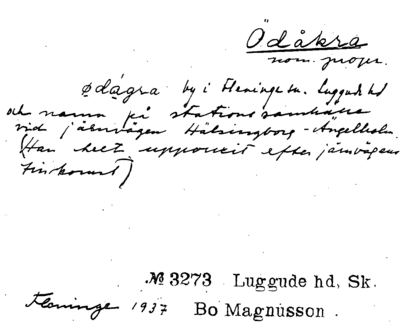 Ödåkra
nom. propr.
ødágra by i Fleninge sn. Luggude hd
och namn på stationssamhälle
vid järnvägen Hälsingborg - Ängelholm.
(Har helt uppkommit efter järnvägens
tillkomst)
№ 3273 Luggude hd, Sk.
Fleninge 1937 Bo Magnusson.